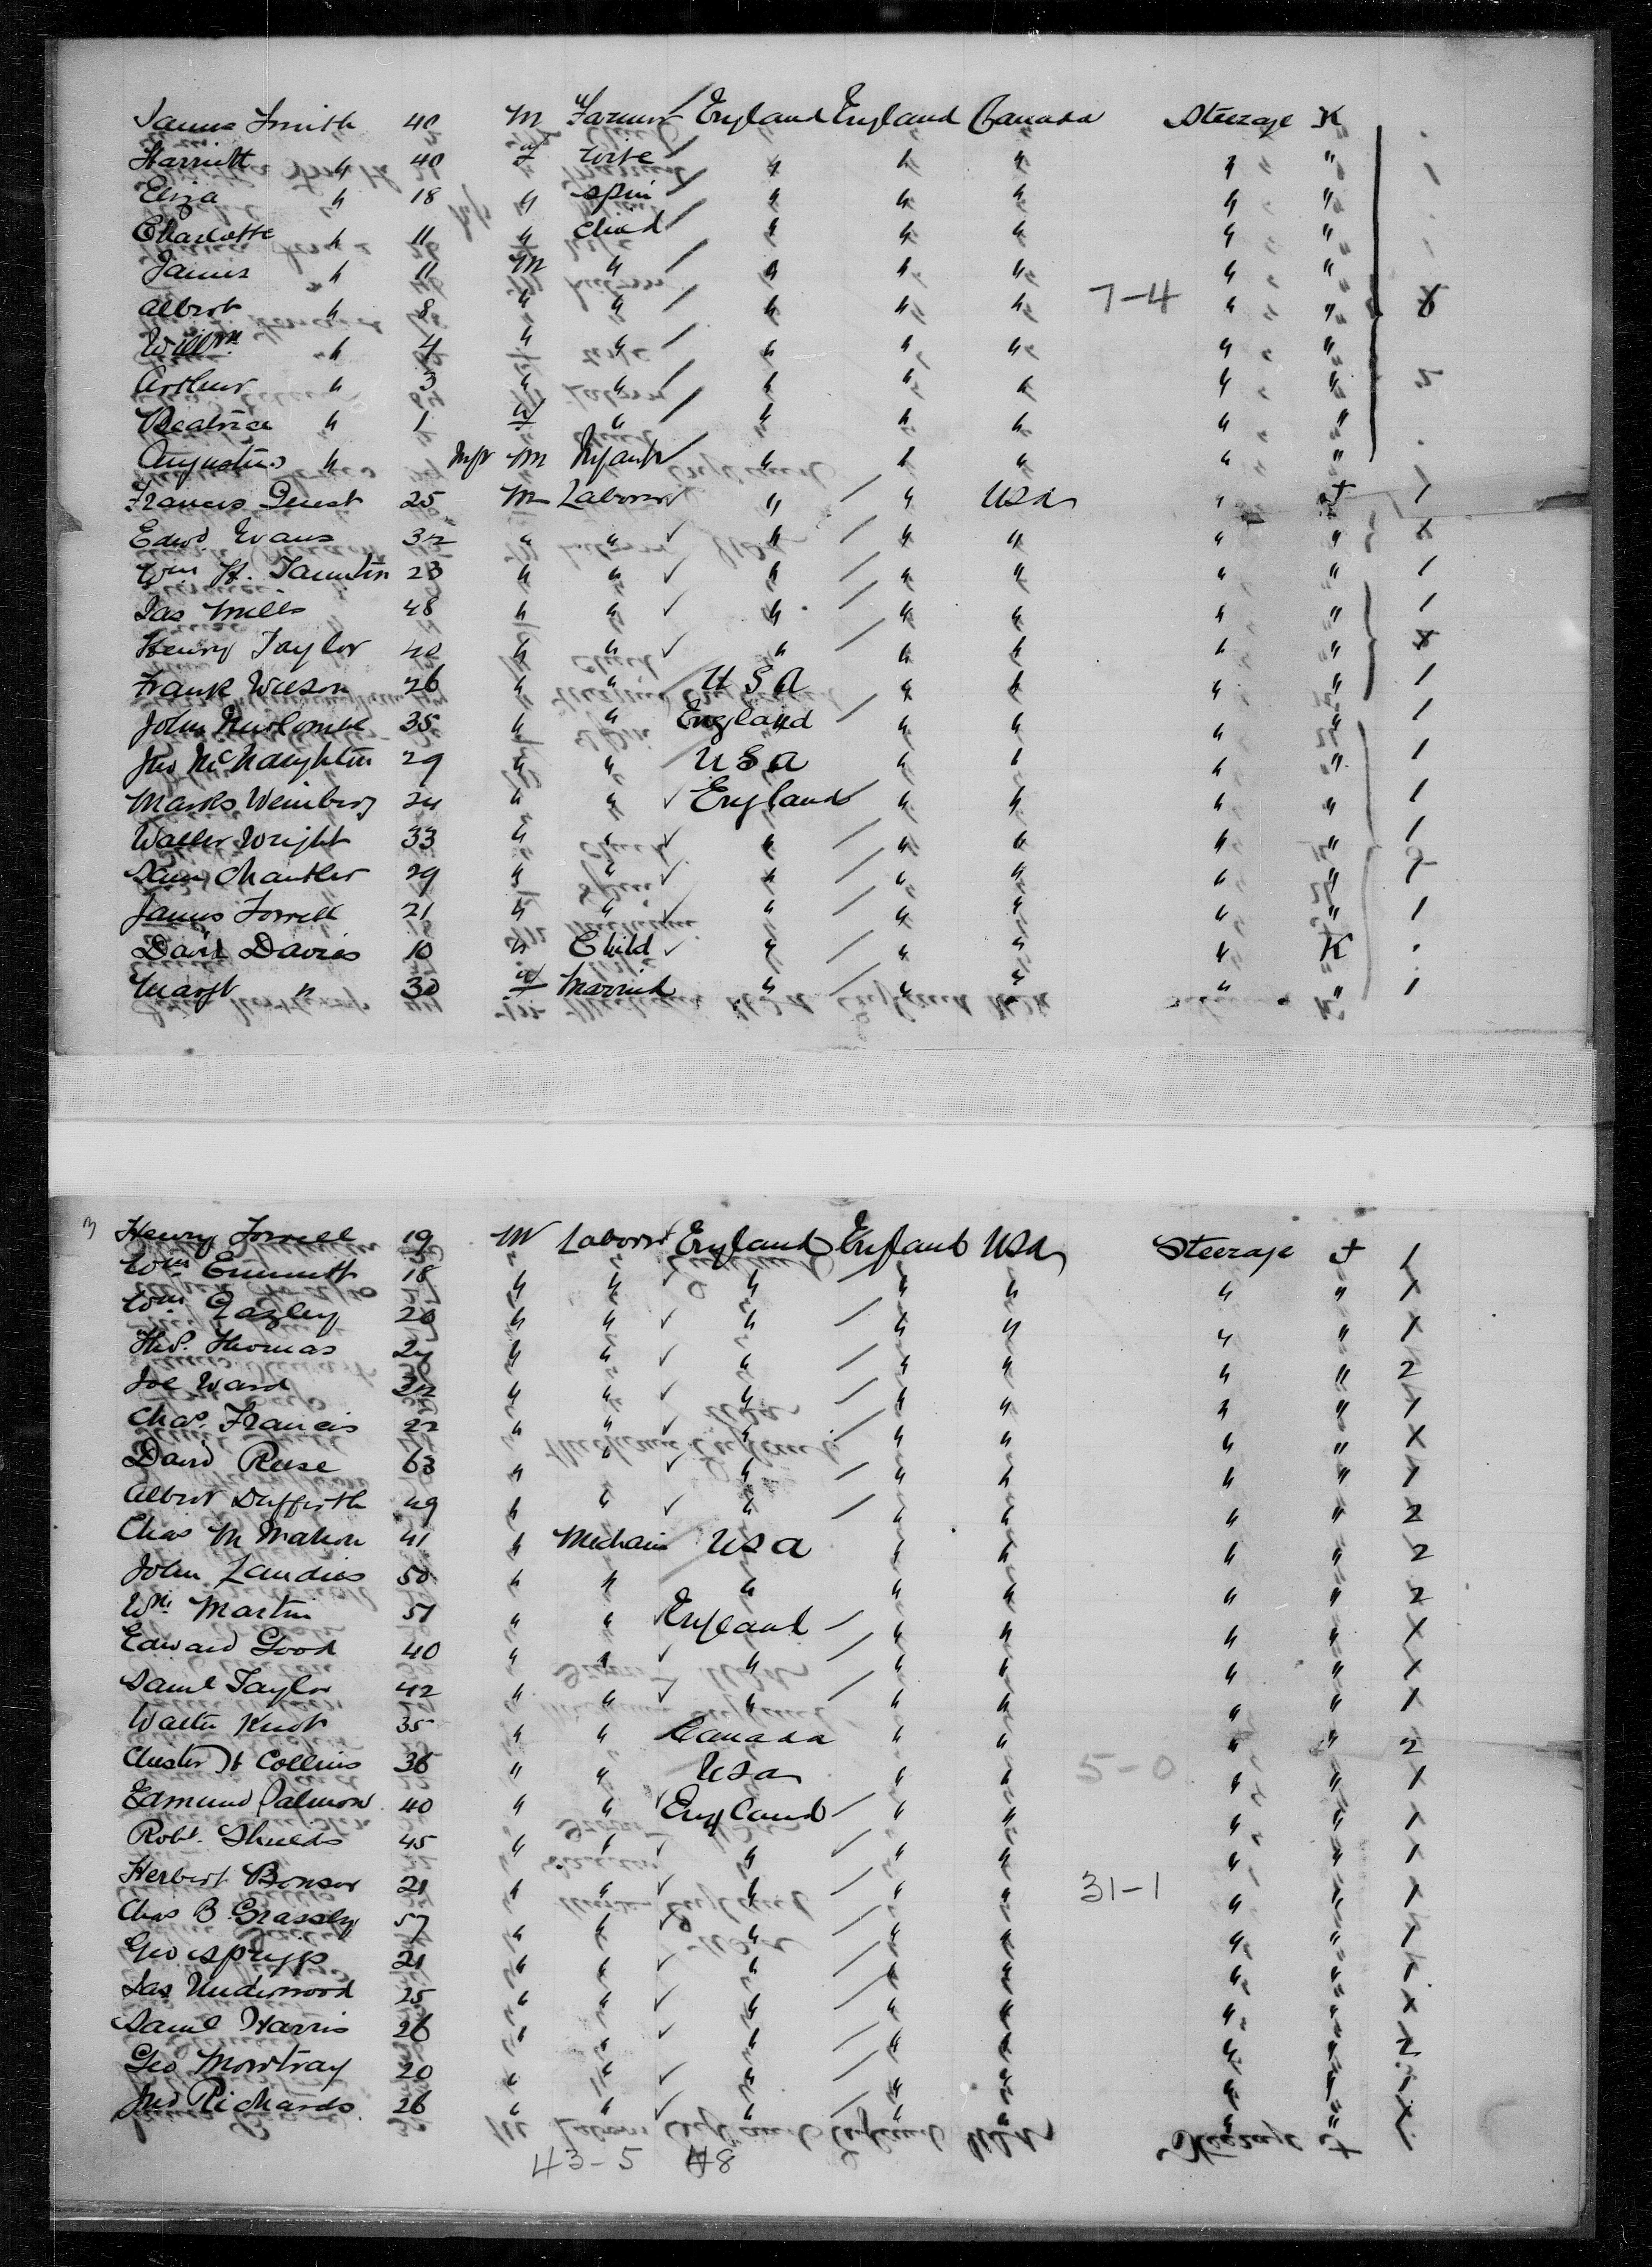 James Smith 40 M Farmer England England Canada Steerage K
Harriett " 40 f wife " " " " "
Eliza " 18 " spin " " " " " 1
Charlotte " 11 " child " " " " "
James " 11 M " " " " " "
Albert " 8 " " " " " 7-4 " "
Willm " 4 " " " " " " "
Arthur " 3 " " " " " " " 2
Beatrice " 1 f " " " " " "
Augustus " Inft M Infant " " " " "
Francis Guest 25 M Laborer " " USA " + 1
Edwd Evans 32 " " " " " " "
Wm H. Taunton 23 " " " " " " " 1
Jas Mills 48 " " " " " " " 1
Henry Taylor 40 " " " " " " "
Frank Wilson 26 " " USA " " " " 1
John Newcombe 35 " " England " " " " 1
Jno McNaughton 29 " " USA " " " " 1
Marks Weinberg 24 " " England " " " " 1
Walter Wright 33 " " " " " " " 1
Saml Chantler 29 " " " " " " "
James Forrell 21 " " " " " " " 1
David Davies 10 " Child " " " " K
Margt " 30 f Married " " " " " 1
3 Henry Forrell 19 M Laborer England England USA Steerage + 1
Wm Emmett 18 " " " " " " " 1
Wm Gazley 20 " " " " " " " 1
Thos. Thomas 24 " " " " " " " 2
Joe Ward 32 " " " " " " " 1
Chas. Francis 22 " " " " " " "
David Reese 63 " " " " " " " 1
Albert Duffirth 49 " " " " " " " 2
Chas McMahon 41 " Mechanic USA " " " " 2
John Landies 50 " " " " " " " 2
Wm Martin 51 " " England " " " " 1
Edward Good 40 " " " " " " " 1
Saml Taylor 42 " " " " " " " 1
Walter Knot 35 " " Canada " " " " 2
Chester H Collins 36 " " USA " " 5-0 " " 1
Edmund Palmer 40 " " England " " " " 1
Robt. Shields 45 " " " " " " " 1
Herbert Bonser 21 " " " " " 31-1 " " 1
Chas B Grassly 57 " " " " " " " 1
Geo Spriggs 21 " " " " " " " 1
Jas Underwood 25 " " " " " " "
Saml Harris 26 " " " " " " "
Geo Mowtray 20 " " " " " " "
Jno Richards 26 " " " " " " "
43-5 48